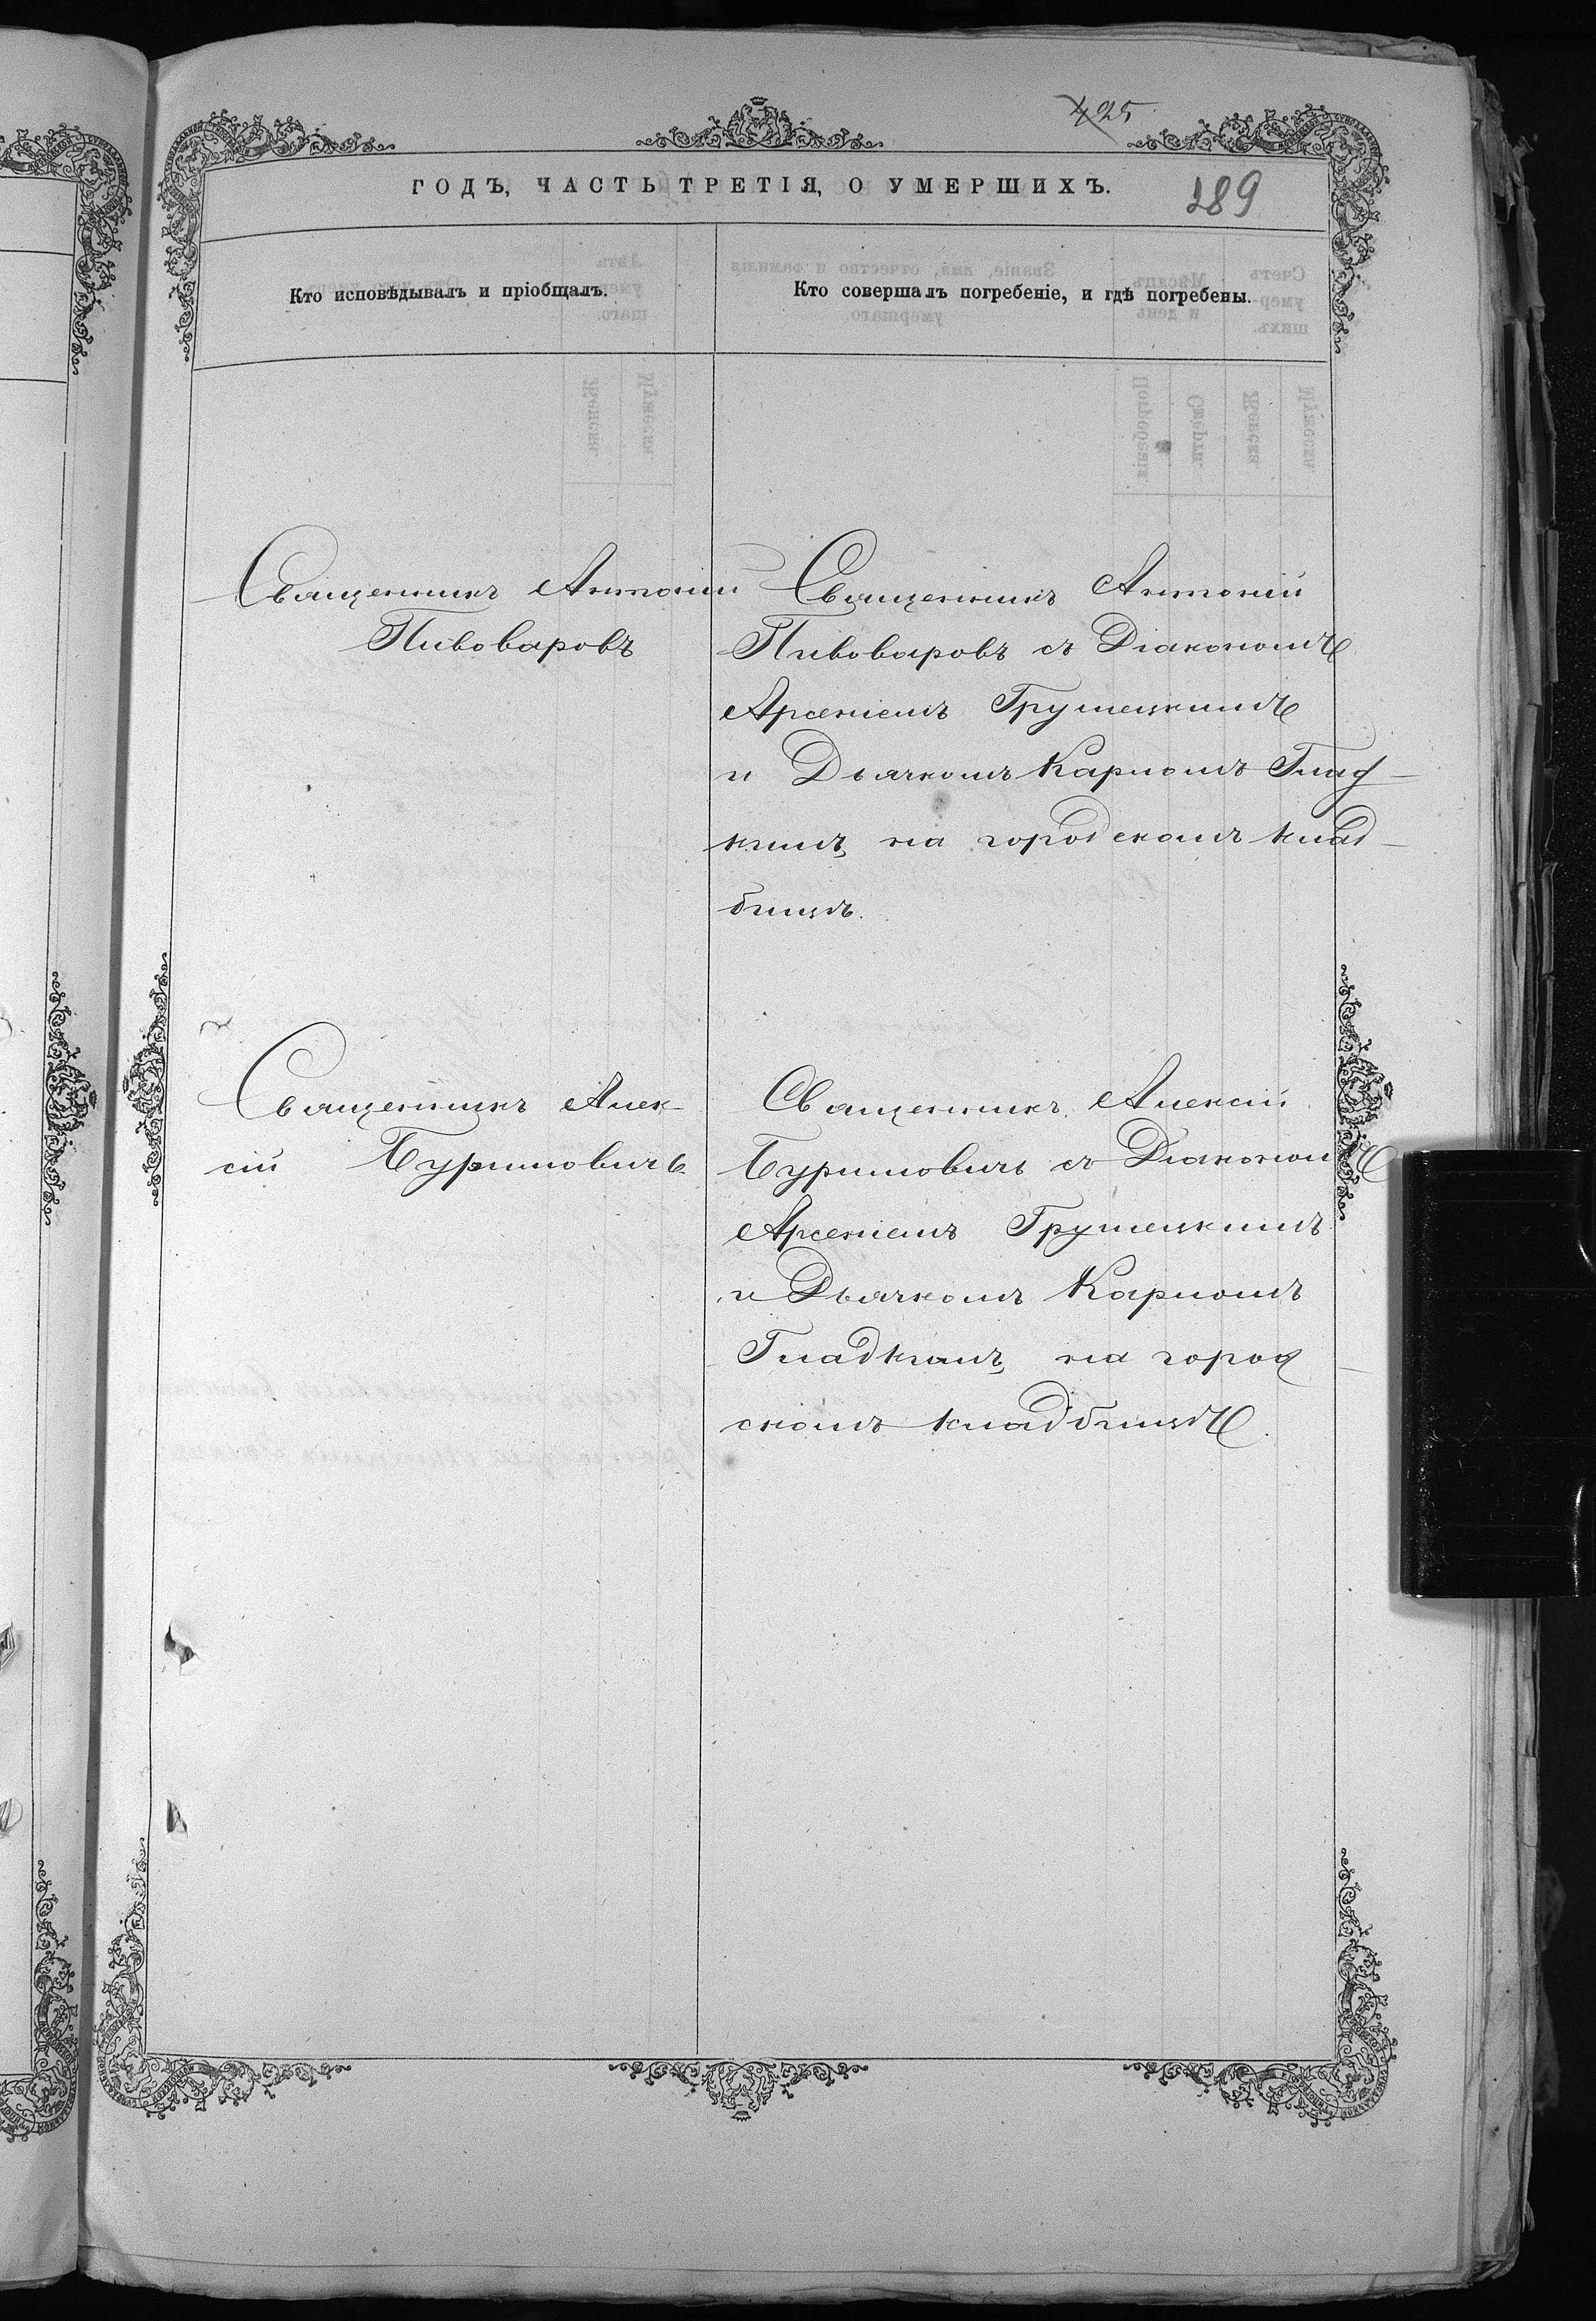 425
ГОДЪ, ЧАСТЬ ТРЕТІЯ, О УМЕРШИХЪ.
289
Кто исповѣдывалъ и пріобщалъ.
Кто совершалъ погребеніе, и гдѣ погребены.
Священникъ Антоній
Пивоваровъ
Священникъ Антоній
Пивоваровъ съ Діакономъ
Арсеніемъ Грушецкимъ
и Дьячкомъ Карпомъ Глад-
кимъ, на городскомъ клад-
бищѣ.
Священникъ Алек-
сій Буримовичъ
Священникъ Алексій
Буримовичъ съ Діакономъ
Арсеніемъ Грушецкимъ
и Дьячкомъ Карпомъ
Гладкимъ, на город-
скомъ кладбищѣ.